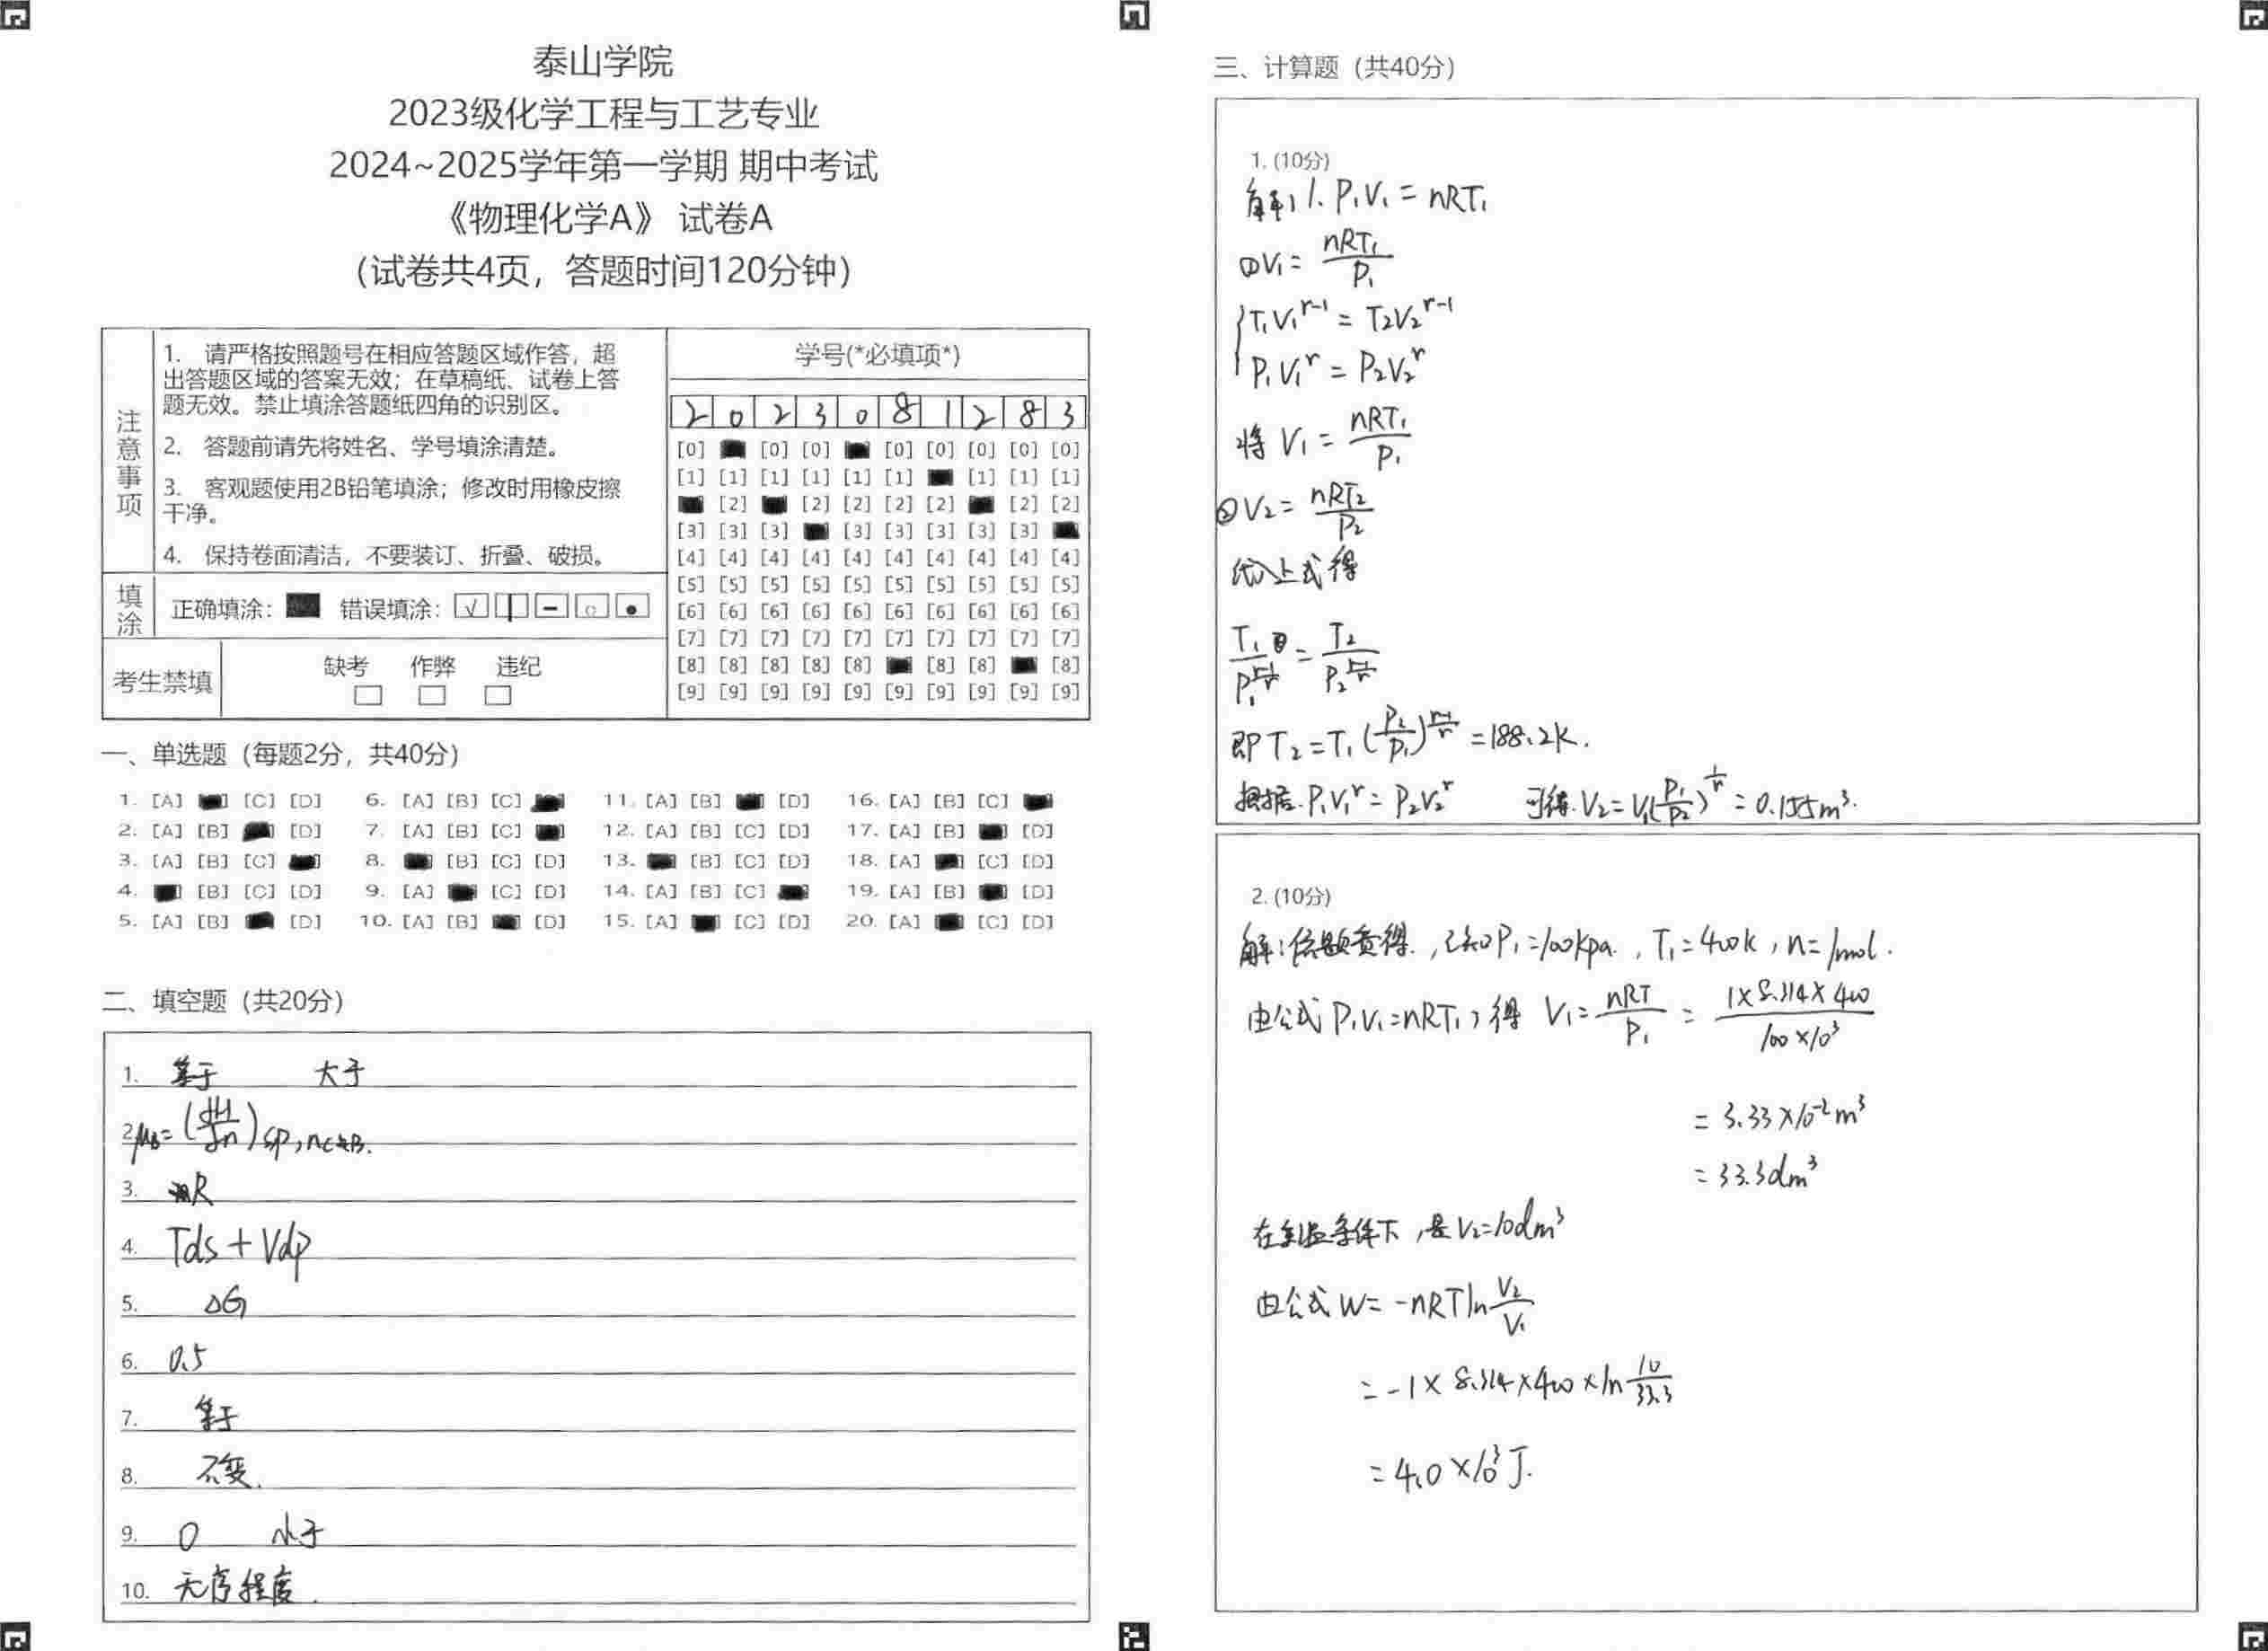 泰山学院
2023级化学工程与工艺专业
2024~2025学年第一学期 期中考试
《物理化学A》 试卷A
（试卷共4页，答题时间120分钟）
注意事项
1. 请严格按照题号在相应答题区域作答，超
出答题区域的答案无效；在草稿纸、试卷上答
题无效。禁止填涂答题纸四角的识别区。
2. 答题前请先将姓名、学号填涂清楚。
3. 客观题使用2B铅笔填涂；修改时用橡皮擦
干净。
4. 保持卷面清洁，不要装订、折叠、破损。
填涂
正确填涂： 错误填涂：
考生禁填
缺考 作弊 违纪
学号(*必填项*)
2 0 2 3 0 8 1 2 8 3
[0] [0] [0] [0] [0] [0] [0] [0]
[1] [1] [1] [1] [1] [1] [1] [1] [1]
[2] [2] [2] [2] [2] [2] [2]
[3] [3] [3] [3] [3] [3] [3] [3]
[4] [4] [4] [4] [4] [4] [4] [4] [4] [4]
[5] [5] [5] [5] [5] [5] [5] [5] [5] [5]
[6] [6] [6] [6] [6] [6] [6] [6] [6] [6]
[7] [7] [7] [7] [7] [7] [7] [7] [7] [7]
[8] [8] [8] [8] [8] [8] [8] [8]
[9] [9] [9] [9] [9] [9] [9] [9] [9] [9]
一、单选题（每题2分，共40分）
1. [A] [C] [D] 6. [A] [B] [C] 11. [A] [B] [D] 16. [A] [B] [C]
2. [A] [B] [D] 7. [A] [B] [C] 12. [A] [B] [C] [D] 17. [A] [B] [D]
3. [A] [B] [C] 8. [B] [C] [D] 13. [B] [C] [D] 18. [A] [C] [D]
4. [B] [C] [D] 9. [A] [C] [D] 14. [A] [B] [C] 19. [A] [B] [D]
5. [A] [B] [D] 10. [A] [B] [D] 15. [A] [C] [D] 20. [A] [C] [D]
二、填空题（共20分）
1. 等于 大于
2. μB=(∂H/∂n)S,P,nC≠B.
3. R
4. Tds + Vdp
5. ΔG
6. 0.5
7. 等于
8. 不变.
9. 0 小于
10. 无序程度.
三、计算题（共40分）
1. (10分)
解: 1. P₁V₁ = nRT₁
①V₁ = nRT₁/P₁
T₁V₁^(r-1) = T₂V₂^(r-1)
P₁V₁^r = P₂V₂^r
将 V₁ = nRT₁/P₁
②V₂ = nRT₂/P₂
代入上式得
T₁/P₁^((r-1)/r) = T₂/P₂^((r-1)/r)
即 T₂ = T₁(P₂/P₁)^((r-1)/r) = 188.2K.
根据. P₁V₁^r = P₂V₂^r 可得. V₂ = V₁(P₁/P₂)^(1/r) = 0.155m³.
2. (10分)
解: 依题意得. , 已知P₁=100kpa. , T₁=400K , n=1mol.
由公式 P₁V₁=nRT₁, 得 V₁ = nRT/P₁ = 1×8.314×400/100×10³
= 3.33×10⁻²m³
= 33.3dm³
在恒温条件下 , 是V₂=10dm³
由公式 W = -nRT ln V₂/V₁
= -1×8.314×400×ln 10/33.3
= 4.0×10³J.